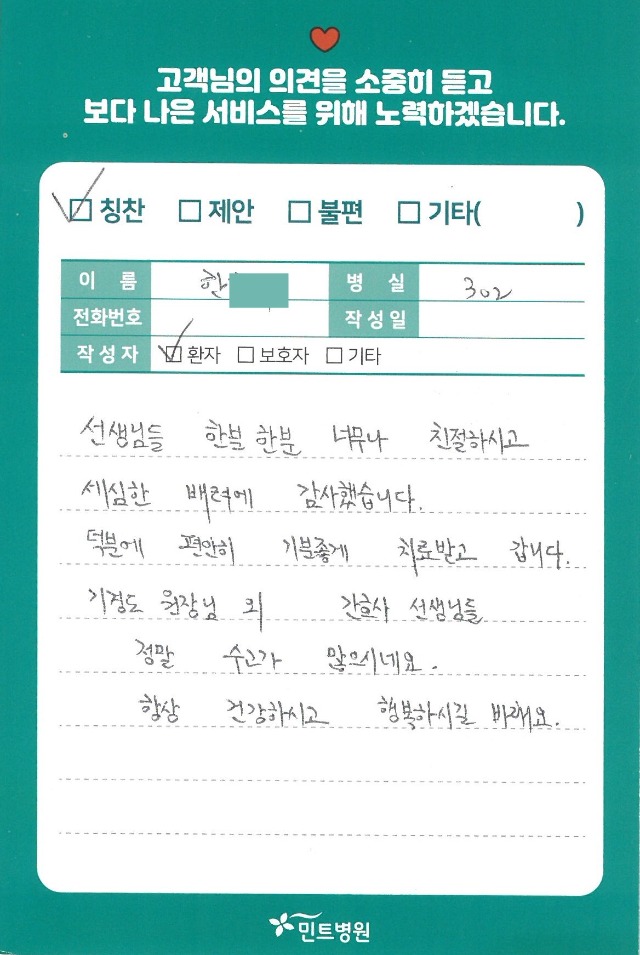 고객님의 의견을 소중히 듣고
보다 나은 서비스를 위해 노력하겠습니다.
칭찬 제안 불편 기타( )
이 름 한 병 실 302
전화번호 작성일
작성자 환자 보호자 기타
선생님들 한분 한분 너무나 친절하시고
세심한 배려에 감사했습니다.
덕분에 편안히 기분좋게 치료받고 갑니다.
기경도 원장님 외 간호사 선생님들
정말 수고가 많으시네요.
항상 건강하시고 행복하시길 바래요.
민트병원